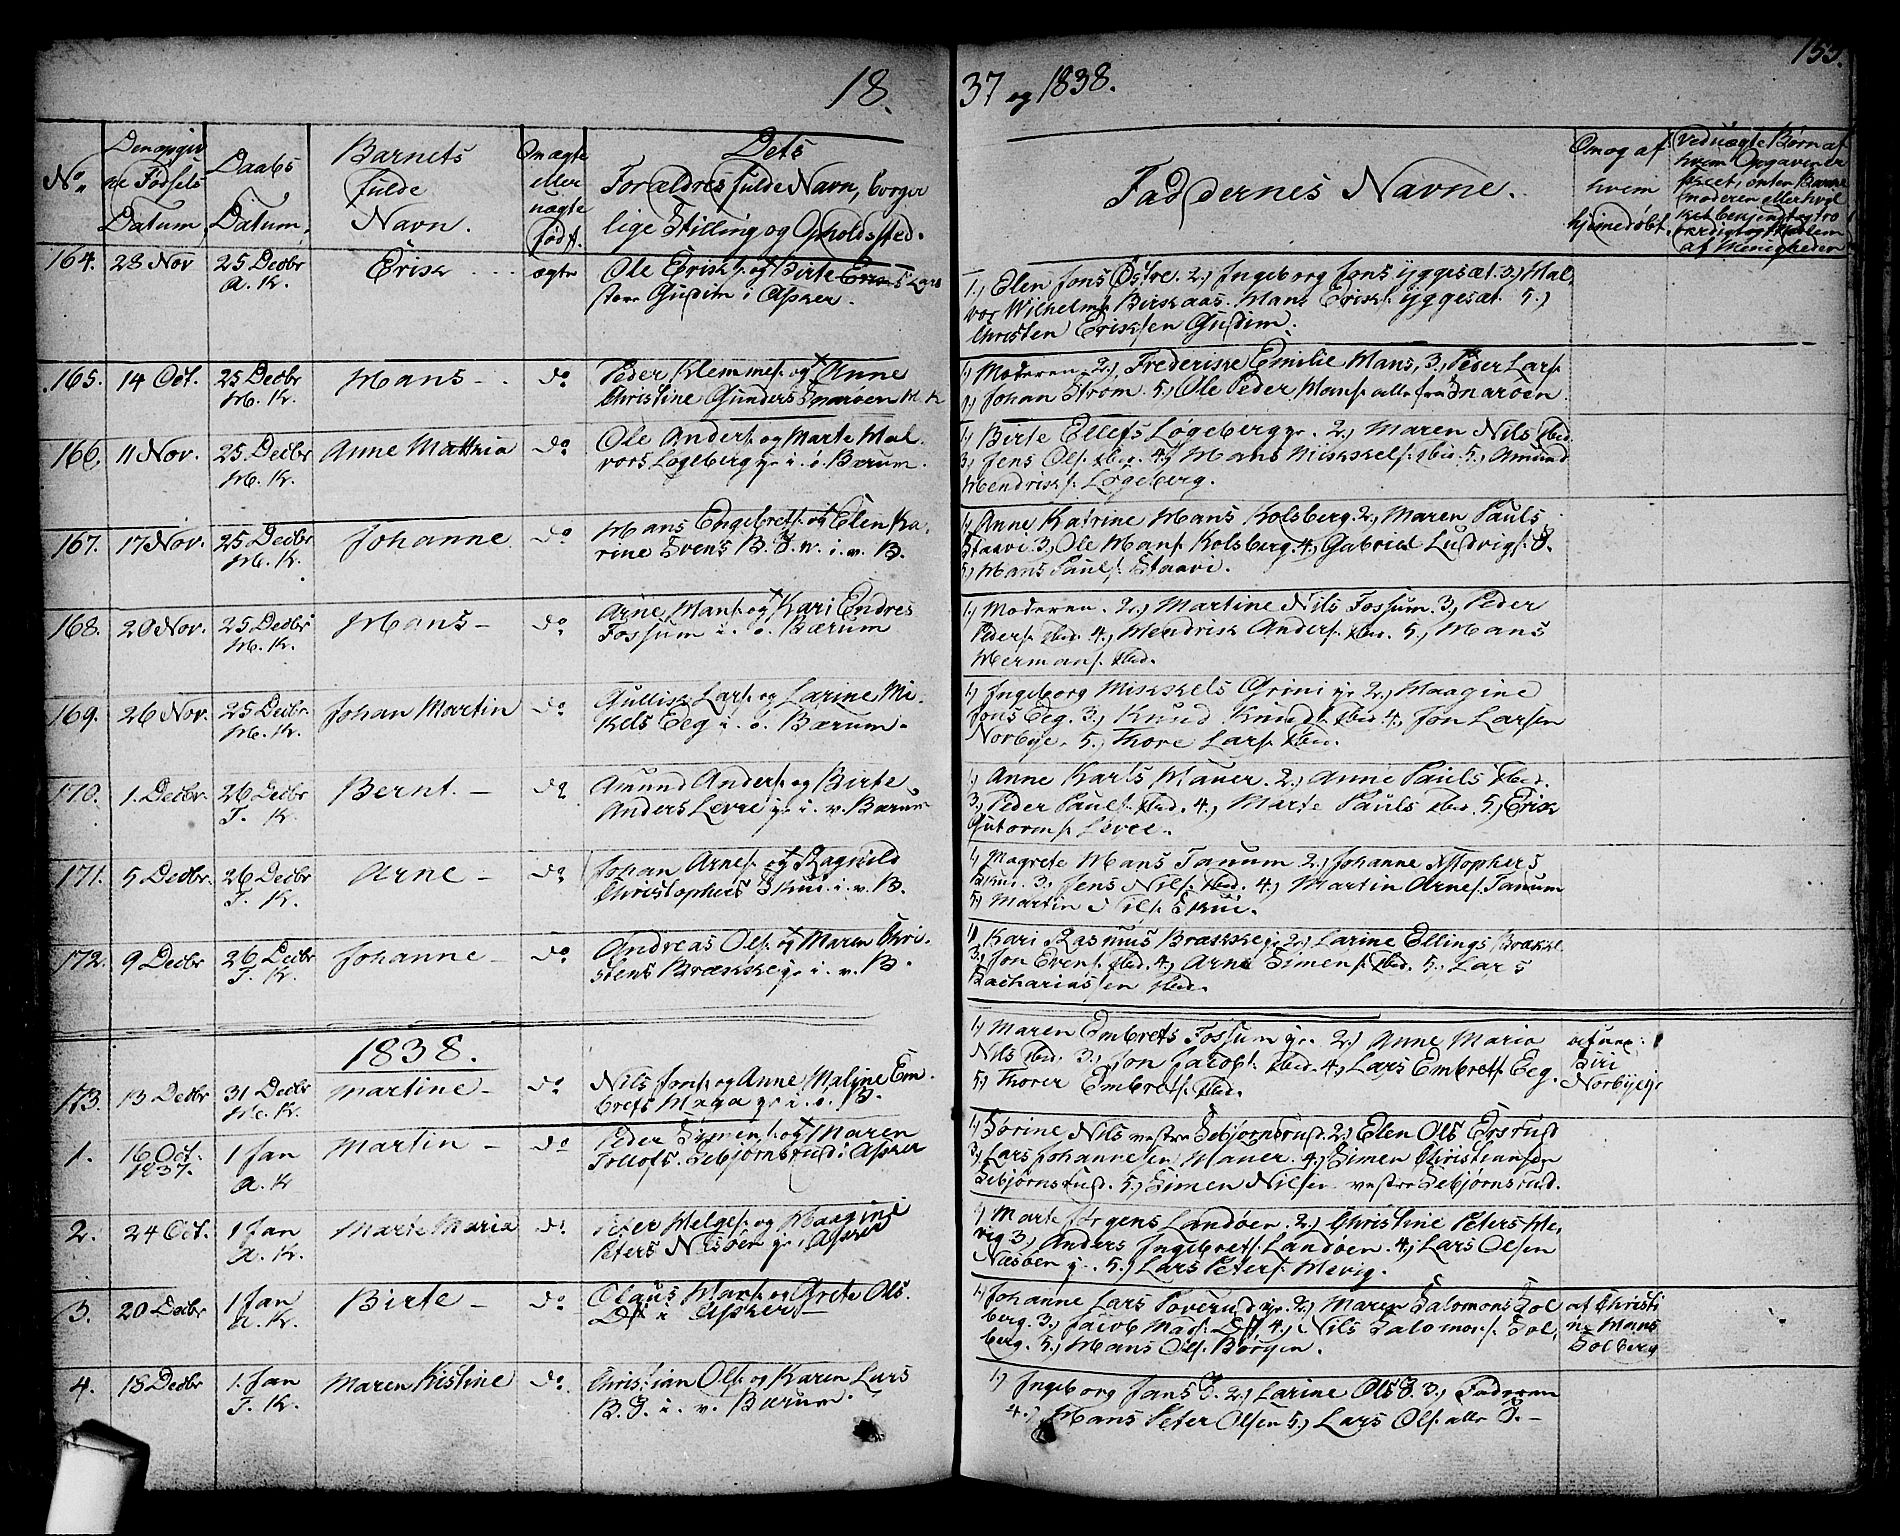 18
37 og 1838.
155.
No.
Den opgiv
ne Fødsels
Datum
Daabs
Datum,
Barnets
fulde
Navn.
Om ægte
eller
uægte
født.
Dets
Forældres fulde Navn, borger
lige Stilling og Opholdssted.
Faddernes Navne.
Om og af
hvem
hjemedøbt.
Ved uægte Børn af
hvem Opgaven er
skeet, enten Barne
moderen eller hvil
af Menigheden
164.
28 Nov
25 Decbr
A. K.
Erik
ægte
Ole Eriks. og Birte Lars
Gudim i Asker.
1.) Elen Jons Østre. 2.) Ingeborg Jons yggesæt 3.) Hal
vor Wilhelms. Birkaas. Hans Eriks. yggesæt 5.)
Christen Eriksen Gudim.
165.
14 Oct.
25 Decbr
H. K.
Hans
do
Peder Klemmes. og Anne
Christine Gunders Snarøen H. K
1.) Moderen 2.) Frederikke Emilie Hans, 3.) Peder Lars.
4.) Johan Strøm 5.) Ole Peder Hans. alle fra Snarøen
166.
11 Nov.
25 Decbr
H. K.
Anne Mathia
do
Ole Anders. og Marte Hal
vors Løgeberg yr i. ø. Bærum.
1.) Birte Ellefs Løgeberg yr. 2.) Maren Nils ibid.
3.) Jens Ols. ibid. 4.) Hans Mikkels. ibid. 5.) Amund
Hendriks. Løgeberg.
167.
17 Nov.
25 Decbr
H. K.
Johanne
do
Hans Engebrets. og Elen Ka
rine Svens B. S. n. i. v. B.
1.) Anne Katrine Hans Kolsberg. 2.) Maren Pauls
Staavi. 3.) Ole Hans. Kolsberg. 4.) Gabriel Ludvigs. S.
5.) Hans Pauls. Staavi.
168.
20 Nov.
25 Decbr
H. K.
Hans
do
Arne Hans. og Kari Endres
Fossum i. ø. Bærum
1.) Moderen. 2.) Martine Nils Fossum. 3.) Peder
Peders. ibid. 4.) Hendrik Anders. ibid. 5.) Hans
Hermans. ibid.
169.
26 Nov.
25 Decbr
H. K.
Johan Martin
do
Gullik Lars. og Larine Mi
kels Eeg i. ø. Bærum.
1.) Ingeborg Mikkels Grini yr 2.) Maagine
Jons Eeg. 3.) Knud Knuds. ibid. 4.) Jon Larsen
Norbye. 5.) Thore Lars. ibid.
170.
1. Decbr.
26 Decbr
T. K.
Bernt.
do
Amund Anders. og Birte
Anders Levre yr i. v. Bærum
1.) Anne Karls Hauer. 2.) Anne Pauls ibid.
3.) Peder Pauls. ibid. 4.) Marte Pauls ibid. 5.) Erik
Gutorms. Levre.
171.
5 Decbr.
26 Decbr
T. K.
Arne
do
Johan Arnes. og Ragnild
Christophers Skui i. v. B.
1.) Magrete Hans Tanum 2.) Johanne Xstophers
Skui. 3.) Jens Nils. ibid. 4.) Martin Arnes. Tanum
5.) Martin Nils. Skui.
172.
9 Decbr
26 Decbr
T. K.
Johanne
do
Andreas Ols. og Maren Chri
stens Brækkeyr i. v. B.
1.) Kari Rasmus Brækkeyr 2.) Larine Ellings Brække
3.) Jon Evens. ibid. 4.) Arne Simens. ibid. 5.) Lars
Zachariassen ibid.
1838.
173.
13 Decbr
31 Decbr
H. K.
Martine
do
Nils Jons. og Anne Maline Em
brets Haga yr i. ø. B.
1.) Maren Embrets Fossum yr. 2.) Anne Maria
Nils ibid. 3.) Jon Jacobs. ibid. 4.) Lars Embrets. Eeg.
5.) Thorer Embrets. ibid.
Siri
Norbyeyr
1.
16 Oct.
1837.
1 Jan
A. K
Martin
do
Peder Simens. og Maren
Tollofs. Sebjørnsrud i Asker
1.) Sørine Nils vestre Sebjørnsrud. 2.) Elen Ols Ersrud
3.) Lars Johannesen Hauer. 4.) Simen Christiansen
Sebjørnsrud. 5.) Simen Nilsen vestre Sebjørnsrud.
2.
24 Oct.
1 Jan
A. K.
Marte Maria
do
Peter Helges. og Maagine
Peters Nesøen yr i Asker
1.) Marte Jørgens Landøen. 2.) Christine Peters He
vig 3.) Anders Ingebrets. Landøen. 4.) Lars Olsen
Næsøen yr. 5.) Lars Peters. Hevig.
3.
20 Decbr
1 Jan
A. K.
Birte
do
Claus Hans. og Grete Ols.
Ds. i Asker
1.) Johanne Lars Poverud yr. 2.) Maren Salomons Sol
berg. 3.) Jacob Mads. Ds. 4.) Nils Salomons. Sol
berg. 5.) Hans Ols. Børgen.
af Christi
ne Hans
Solberg
4.
18 Decbr
1. Jan
T. K.
Maren Kistine
do.
Christian Ols. og Karen Lars
B. S. i. v. Bærum.
1.) Ingeborg Jans S. 2.) Larine Ols S. 3.) Faderen
4.) Hans Peter Olsen 5.) Lars Ols. alle S.